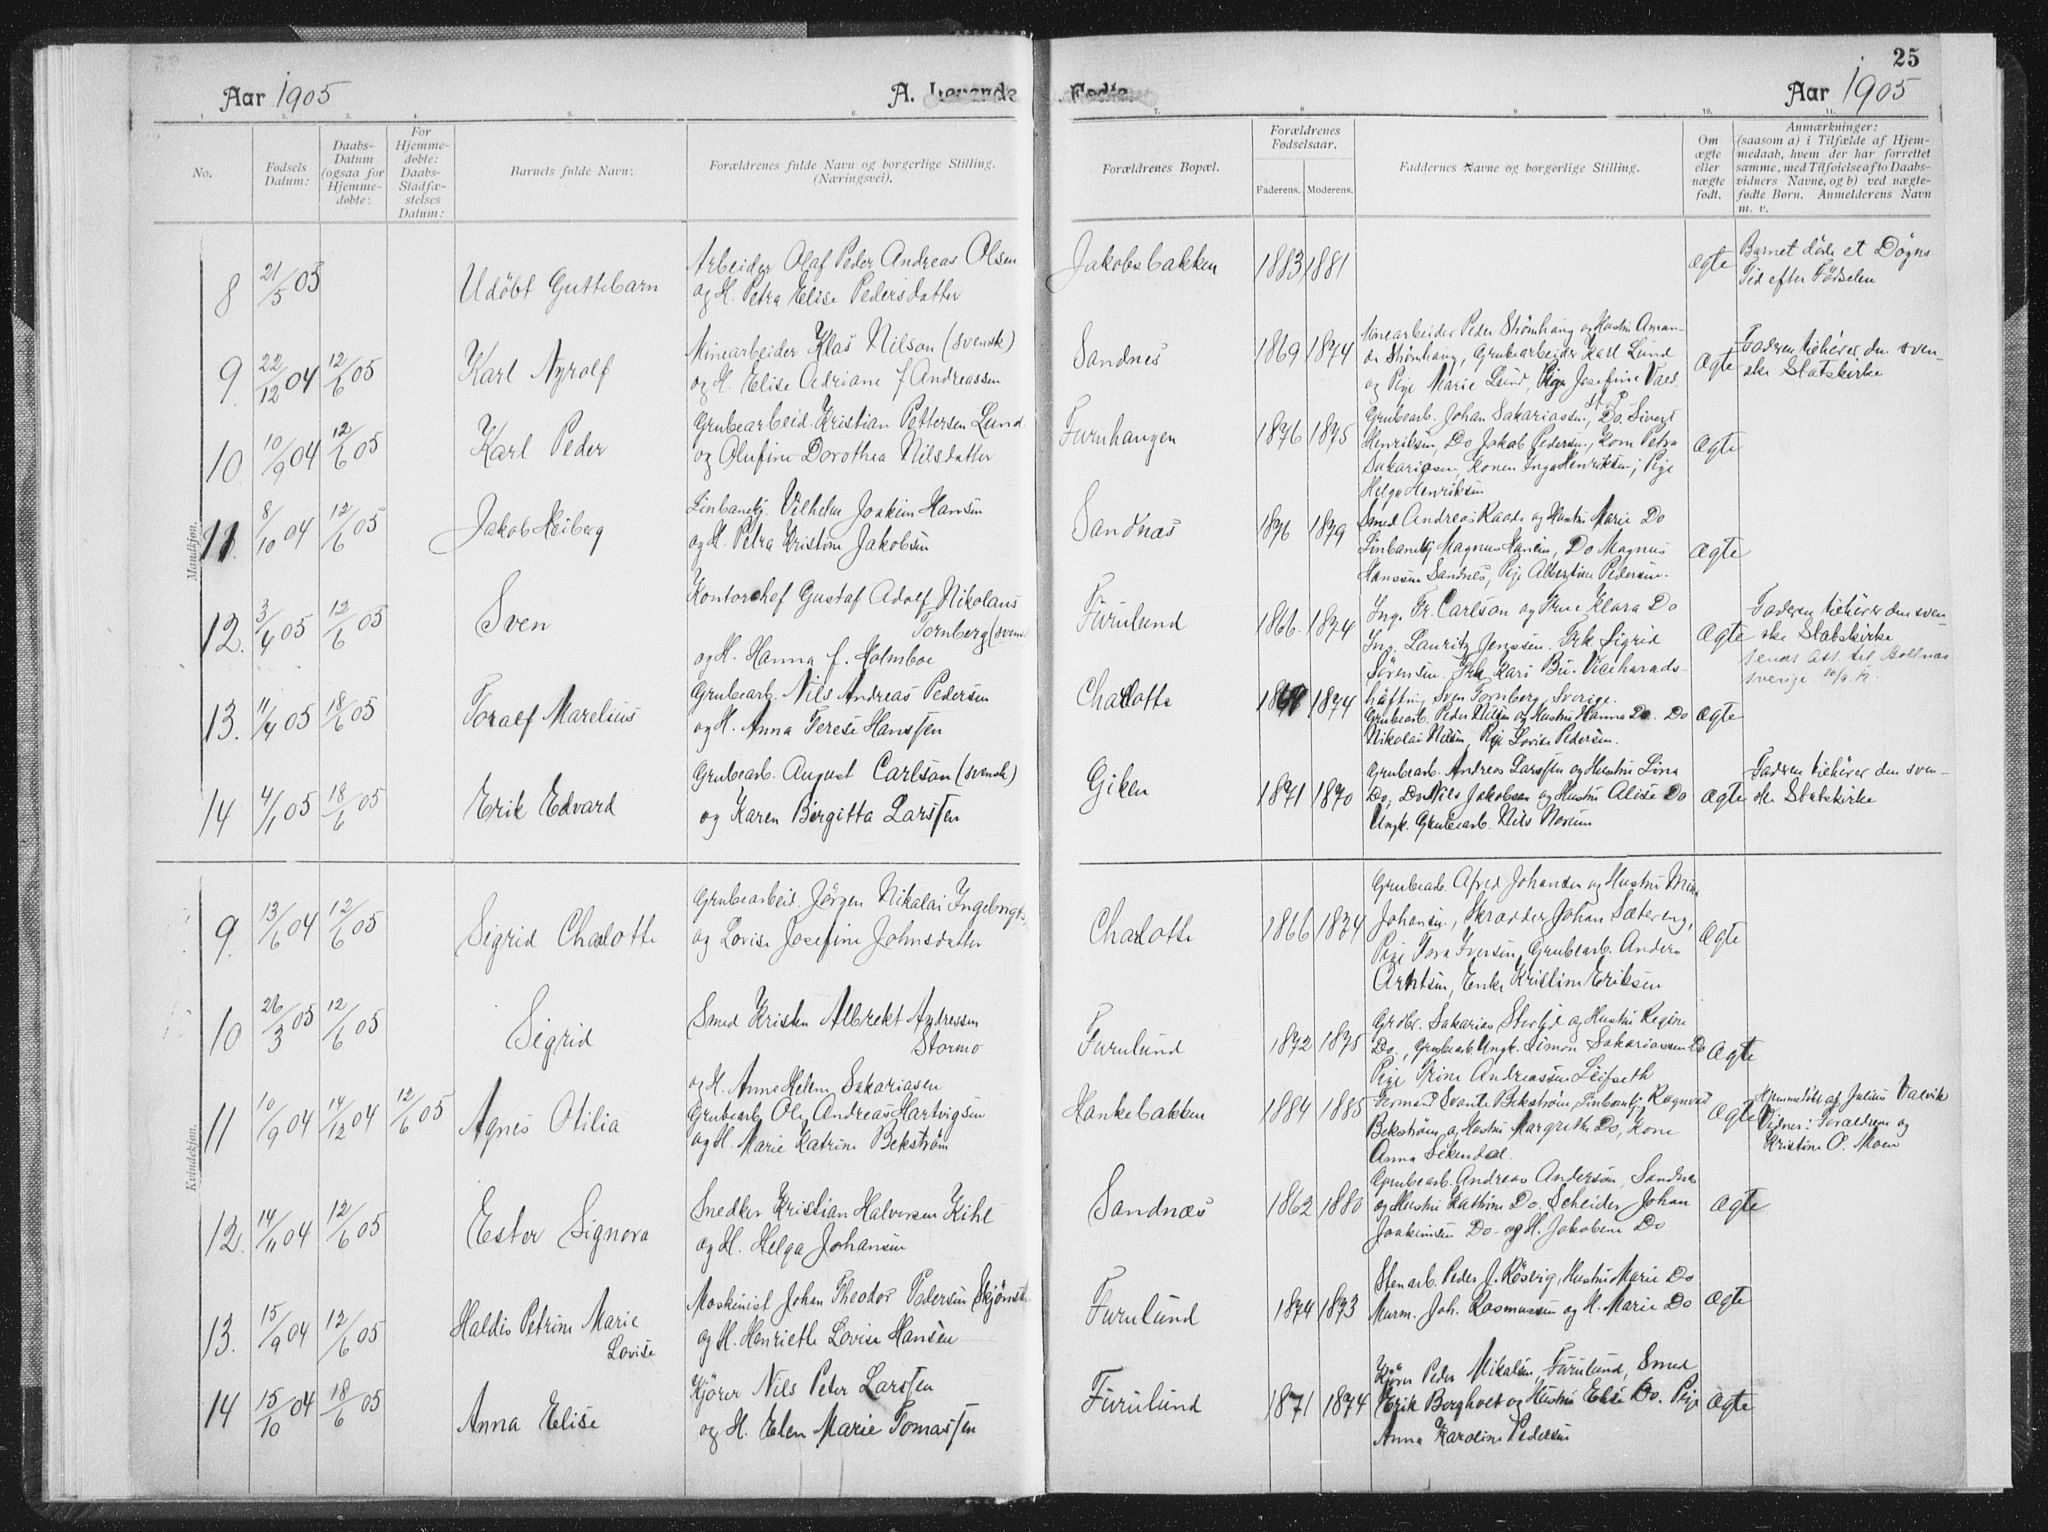 25
Aar 1905
A. Levende
Fødte.
Aar 1905
1. 2. 3. 4. 5. 6. 7. 8. 9. 10. 11.
No.
Fødsels
Datum:
Daabs-
Datum
(ogsaa for
Hjemme-
døbte:
For
Hjemme-
døbte:
Daabs-
Stadfæ-
stelses
Datum:
Barnets fulde Navn:
Forældrenes fulde Navn og borgerlige Stilling.
(Næringsvei).
Forældrenes Bopæl.
Forældrenes
Fødselsaar.
Faderens. Moderens.
Faddernes Navne og borgerlige Stilling.
Om
ægte
eller
nægte
født.
Anmærkninger:
(saasom a) i Tilfælde af Hjem-
medaab, hvem der har forrettet
samme, med Tilføielse af to Daabs-
vidners Navne, og b) ved nægte-
fødte Børn. Anmelderens Navn
m. v.
Mandkjøn.
8 21/5 05
Udöbt Guttebarn
Arbeider Olaf Peder Andreas Olsen
og H. Petra Elise Pedersdatter
Jakobsbakken
1883 1881
ægte
Barnet døde et Døgns
Tid efter Fødselen
9. 22/12 04 12/6 05
Karl Nyrolf
Minearbeider Klas Nilson (svensk)
og H. Elise Adriane f Andreassen
Sandnes
1869 1874
Minearbeider Peder Strømhaug og Hustru Aman-
da Strømhaug, Grubearbeider Karl Lund
og Pige Marie Lund, Pige Josefine
ægte
Faderen tilhører den sven-
ske Statskirke
10. 10/9 04 12/6 05
Karl Peder
Grubearbeid. Kristian Pettersen Lund
og Olufine Dorothea Nilsdatter
Furuhaugen
1876 1875
Grubearb. Johan Sakariassen, Do. Sivert
Henriksen, Do Jakob Pedersen, Kone Petra
Sakariasen, Konen Inga Henriksen; Pige
Helga Henriksen
ægte
11. 8/10 04 12/6 05
Jakob Heiberg
Linbanebj. Vilhelm Joakim Hansen
og H. Petra Kristine Jakobsen
Sandnæs
1876 1879
Smed Andreas Raade og Hustru Marie Do
Linbanebj Magnus Hansen, Do Magnus
Hanssen Sandnes, Pige Albertine Pedersen.
ægte
12. 3/4 05 12/6 05
Sven
Kontorchef Gustaf Adolf Nikolaus
Tornberg (svensk)
og H. Hanna f. Holmboe
Furulund
1866. 1874
Ing. Fr. Carlson og Frue Klara Do
Ing. Lauritz Jenssen. Frk Sigrid
Sörensen. Frk Kari Bu. Viceharads-
häfting Sven Tornberg Sverige.
ægte
Faderen tilhører den sven-
ske Statskirke
13. 11/4 05 18/6 05
Toralf Marelius
Grubearb. Nils Andreas Pedersen
og H. Anna Terese Hanssen
Charlotta
1869 1874
Grubearb. Peder Nilsen og Hustru Hanna Do. Do
Nikolai Nilsen, Pige Lovise Pedersen.
ægte
14 4/1 05 18/6 05
Erik Edvard
Grubearb. August Carlson (svensk)
og Karen Birgitta Larssen
Giken
1871 1870
Grubearb. Andreas Larssen og Hustru Lina
Do, Do Nils Jakobsen og Hustru Alise Do
Ungk. Grubearb. Nils
ægte
Faderen tilhører den sven-
ske Statskirke
Kvindekjøn.
9. 13/6 04 12/6 05
Sigrid Charlotte
Grubearbeid. Jörgen Nikolai Ingebrigts.
og Lovise Josefine Johnsdatter
Charlotte
1866 1874
Grubearb. Afred Johansen og Hustru Mina
Johansen, Skrædder Johan Sætereng,
Pige Tora Iversen, Grubearb. Anders
Arntsen, Enke Kristine Eriksen
ægte
10 26/3 05 12/6 05
Sigrid
Smed Kristen Albrekt Andressen
Stormo
og H. Anne Helene Sakariasen
Furulund
1872 1875
Grdbr. Sakarias Storlid og Hustru Regine
Do., Grubearb. Ungk. Simon Sakariassen Do
Pige Trine Andreassen Leifseth
ægte
11 10/9 04 14/12 04 12/6 05
Agnes Otilia
Grubearb. Ole Andreas Hartvigsen
og H. Marie Katrine Bekström
Hankebakken
1884 1885
Formand Svante Bekström, Linbanebj. Ragnvald
Bekström og Hustru Margrethe Do, Kone
Anna Sekendal.
ægte
Hjemmedöbt af Julius Valvik
Vidner: Foraldrene og
Kristine O. Moen
12. 14/11 04 12/6 05
Ester Signora
Snedker Kristian Halversen Kihl
og H. Helga Johansen
Sandnæs
1862 1880
Grubearb. Andreas Andersen, Sandnes
og Hustru Kathrine Do. Scheider Johan
Joakimsen Do og H. Jakobine Do
ægte
13. 15/9 04 12/6 05
Haldis Petrine Marie
Lovise
Maskinist Johan Theodor Pedersen Skjönst
og H. Henriette Lovise Hansen
Furulund
1874 1873
Stenarb. Peder J. Rösvig, Hustru Marie Do
Murm. Joh. Rasmussen og H. Marie Do
ægte
14 15/10 04 18/6 05
Anna Elise
Kjörer Nils Peter Larssen
og H. Elen Marie Tomassen
Furulund
1871 1874
Kjörer Peder Mikalsen, Furulund, Smed
Erik Berghvet og Hustru Elise Do. Pige
Anna Karoline Pedersen
ægte